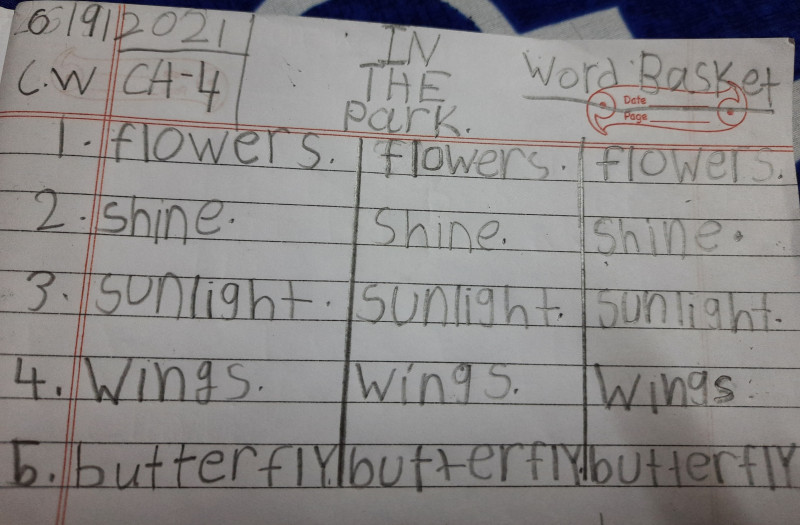 6/9/2021 IN Word Basket
C.W CH-4 THE
Park.
Date
Page
1. flowers. flowers. flowers.
2. Shine. Shine. Shine.
3. sunlight. sunlight. sunlight.
4. Wings. Wings. Wings.
5. butterfly butterfly butterfly